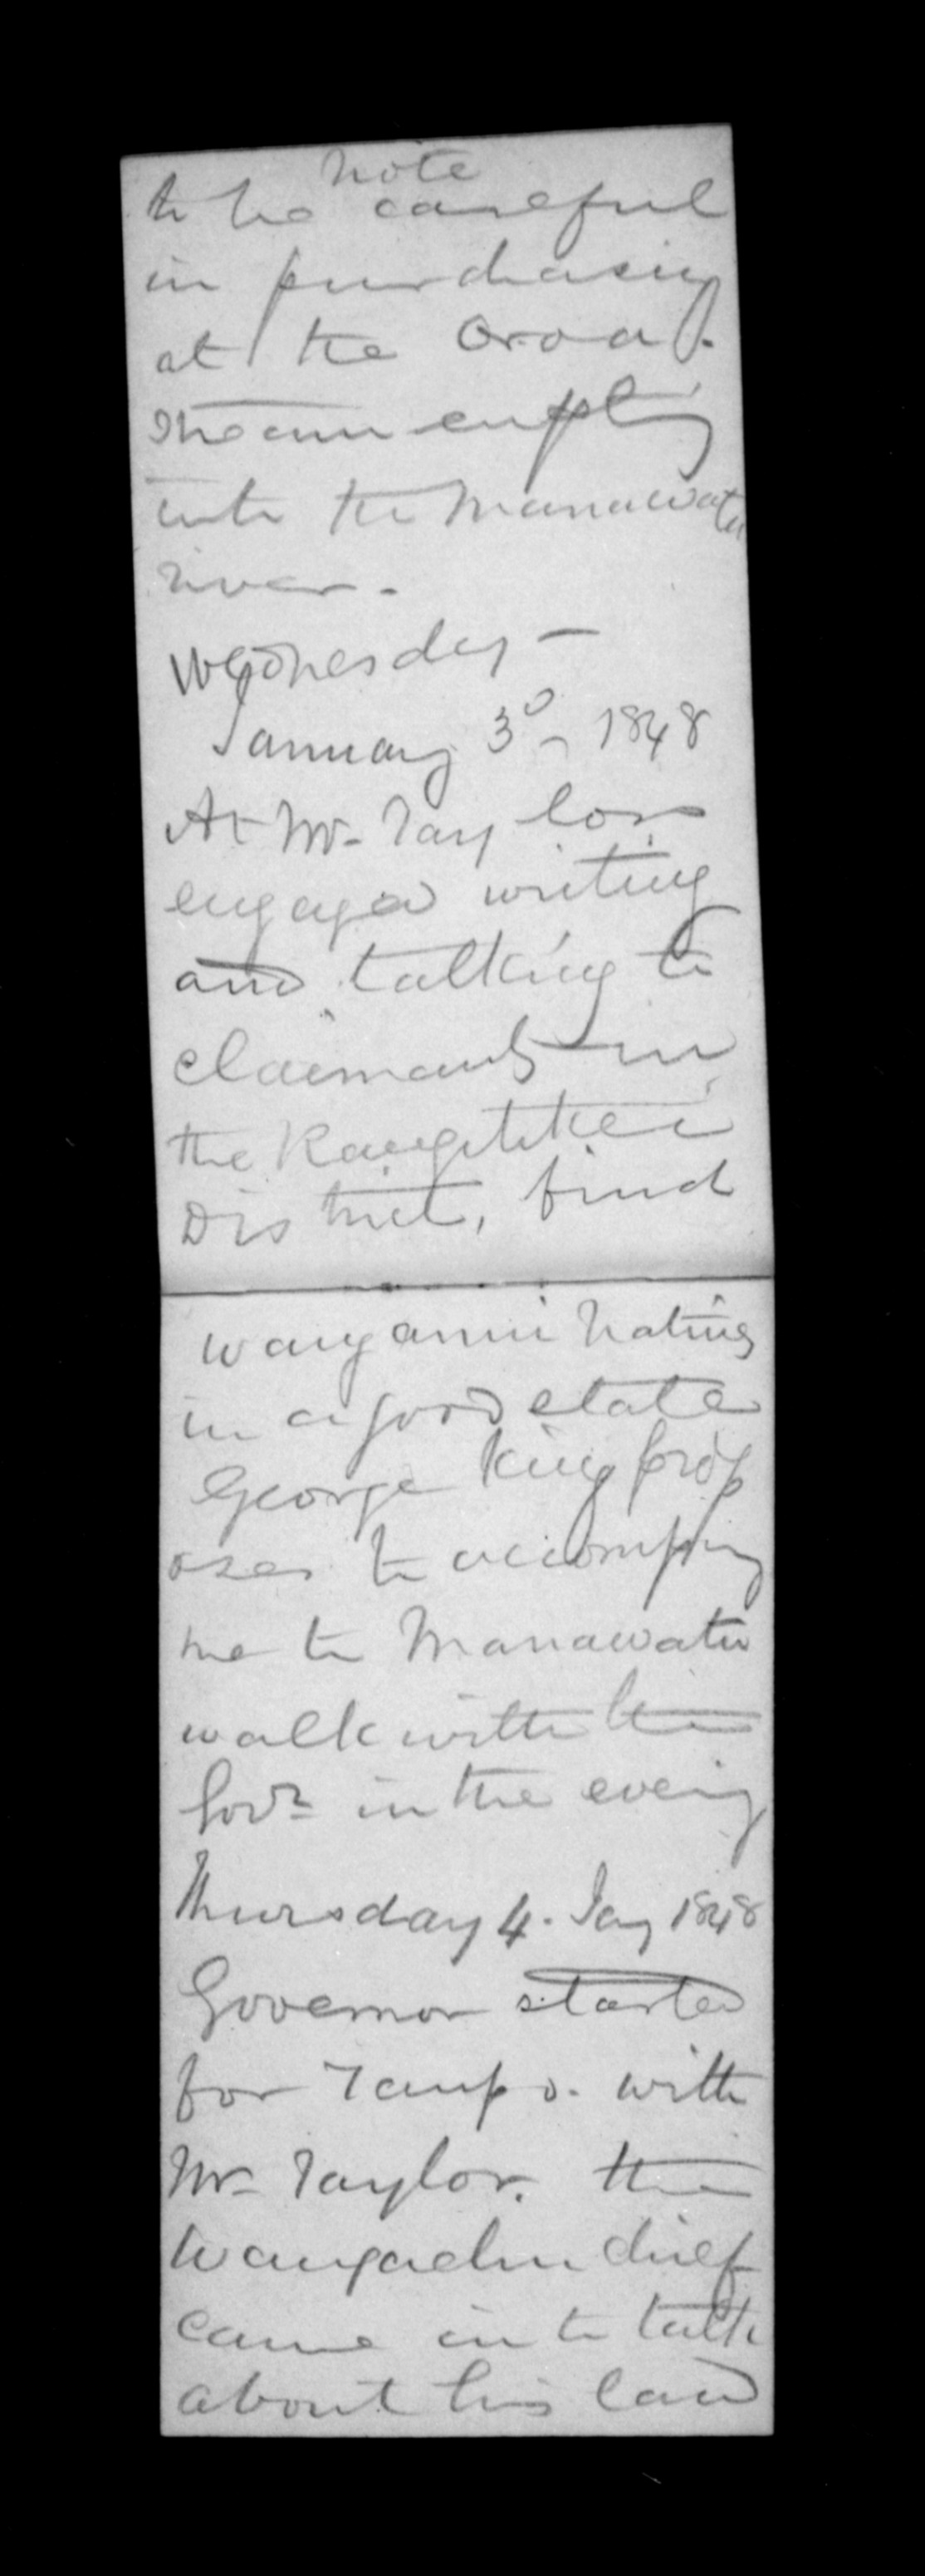 note
to be careful
in purchasing
at the Oroa.
Stream empting
into the Manawatu
river.
Wednesday —
January 3d 1848
At Mr. Taylors
engaged writing
and talking to
claimants in
the Rangitikei
District, find
Wanganui natives
in a good state
George King prop
oses to accompany
me to Manawatu
walk with the
Govr in the eveing
Thursday 4. Jany 1848
Governor started
for Taupo. with
Mr Taylor. the
chief
came in to talk
about his land